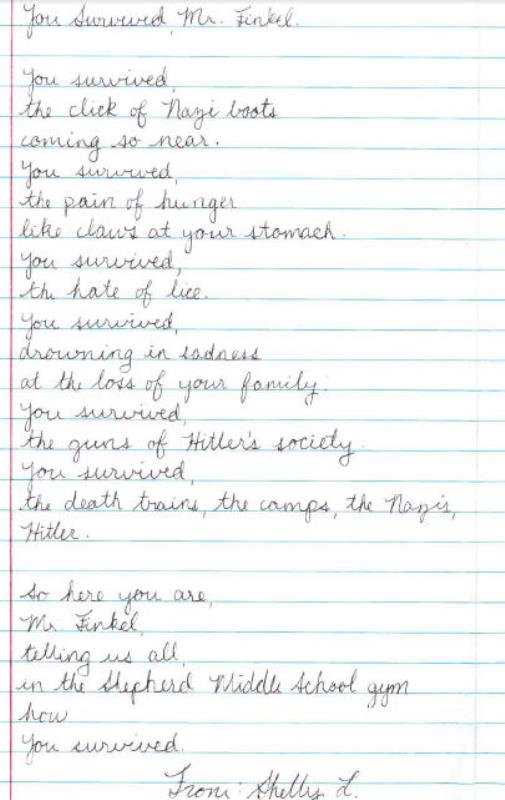 You Survived, Mr. Finkel.
You survived,
the click of Nazi boots
coming so near.
You survived,
the pain of hunger
like claws at your stomach.
You survived,
the hate of lice.
You survived,
drowning in sadness
at the loss of your family.
You survived,
the guns of Hitler's society.
You survived,
the death trains, the camps, the Nazis,
Hitler.
So here you are,
Mr. Finkel,
telling us all,
in the Shepherd Middle School gym
how
You survived.
From: Shelly L.